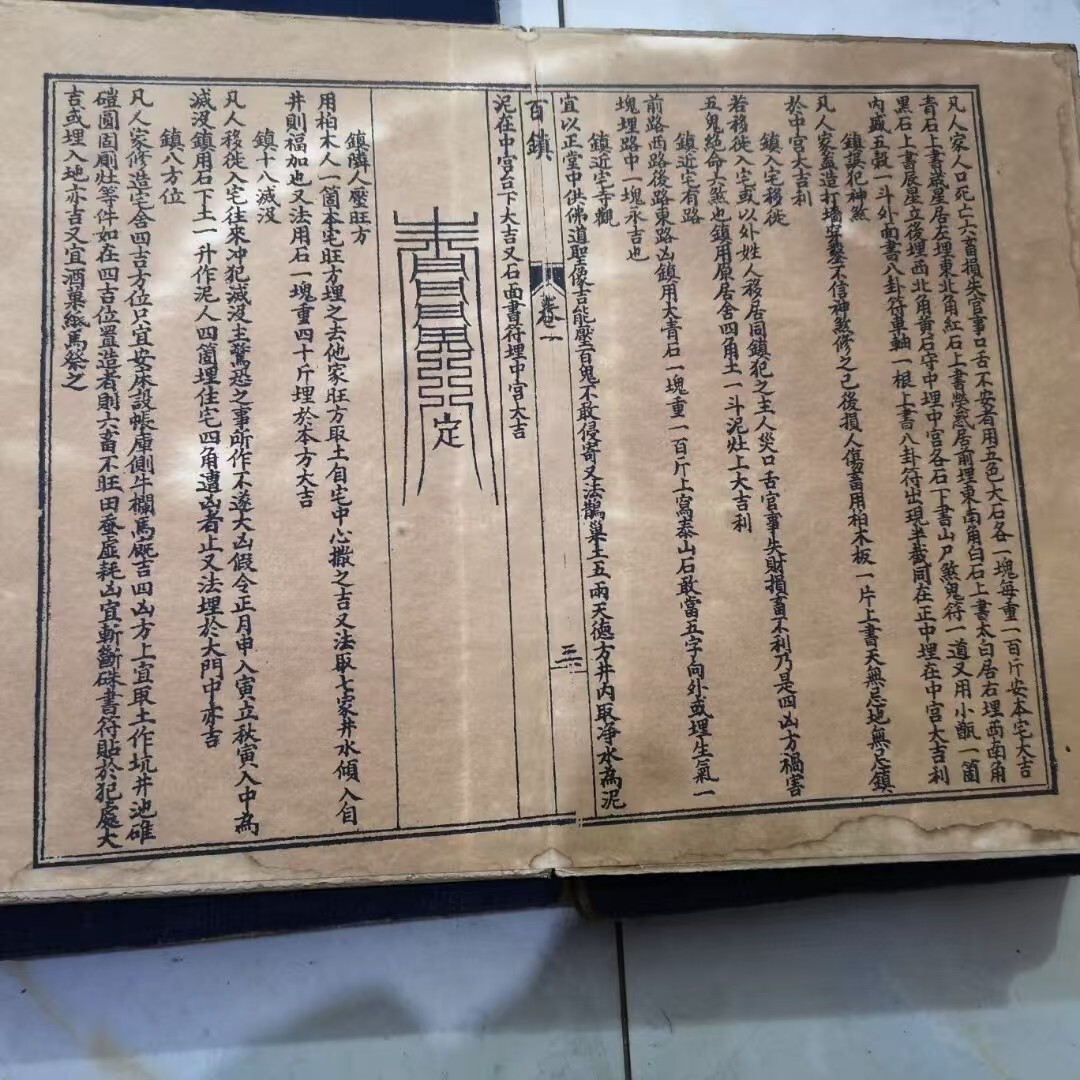 凡人家人口死亡六畜損失官事口舌不安者用五色大石各一塊每重一百斤安本宅大吉
青石上書歲星居左埋東北角紅石上書熒惑居前埋東南角白石上書太白居右埋西南角
黑石上書辰星立後埋西北角黃石守中埋中宮各石下書山尸煞鬼符一道又用小甑一箇
內盛五穀一斗外面書八卦符車軸一根上書八卦符出現半截同在正中埋在中宮大吉利
鎮誤犯神煞
凡人家盖造打墙穿鑿不信神煞修之已後損人傷畜用柏木板一片上書天無忌地無忌鎮
於中宮大吉利
鎮入宅移徙
若移徙入宅或以外姓人移居同鎮犯之主人災口舌官事失財損畜不利乃是四凶方禍害
五鬼絕命六煞也鎮用原居舍四角土一斗泥灶上大吉利
鎮近宅有路
前路西路後路東路凶鎮用大青石一塊重一百斤上寫泰山石敢當五字向外或埋生氣一
塊埋路中一塊永吉也
鎮近宅寺觀
宜以正堂中供佛道聖像吉能壓百鬼不敢侵寄又法鵲巢土五兩天德方井內取净水為泥
百鎮
卷一
三
泥在中宮台下大吉又石面書符埋中宮大吉
定
鎮隣人壓旺方
用柏木人一箇本宅旺方埋之去他家旺方取土自宅中心撒之吉又法取七家井水傾入自
井則福加也又法用石一塊重四十斤埋於本方大吉
鎮十八滅没
凡人移徙入宅往來冲犯滅没主驚恐之事所作不遂大凶假令正月申入寅立秋寅入中為
滅没鎮用石下土一升作泥人四箇埋住宅四角遭凶者止又法埋於大門中亦吉
鎮八方位
凡人家修造宅舍四吉方位只宜安床設帳庫側牛欄馬厩吉四凶方上宜取土作坑井池碓
磑圊囿厠灶等件如在四吉位置造者則六畜不旺田蚕虛耗凶宜斬斷硃書符貼於犯處大
吉或埋入地亦吉又宜酒菓紙馬祭之